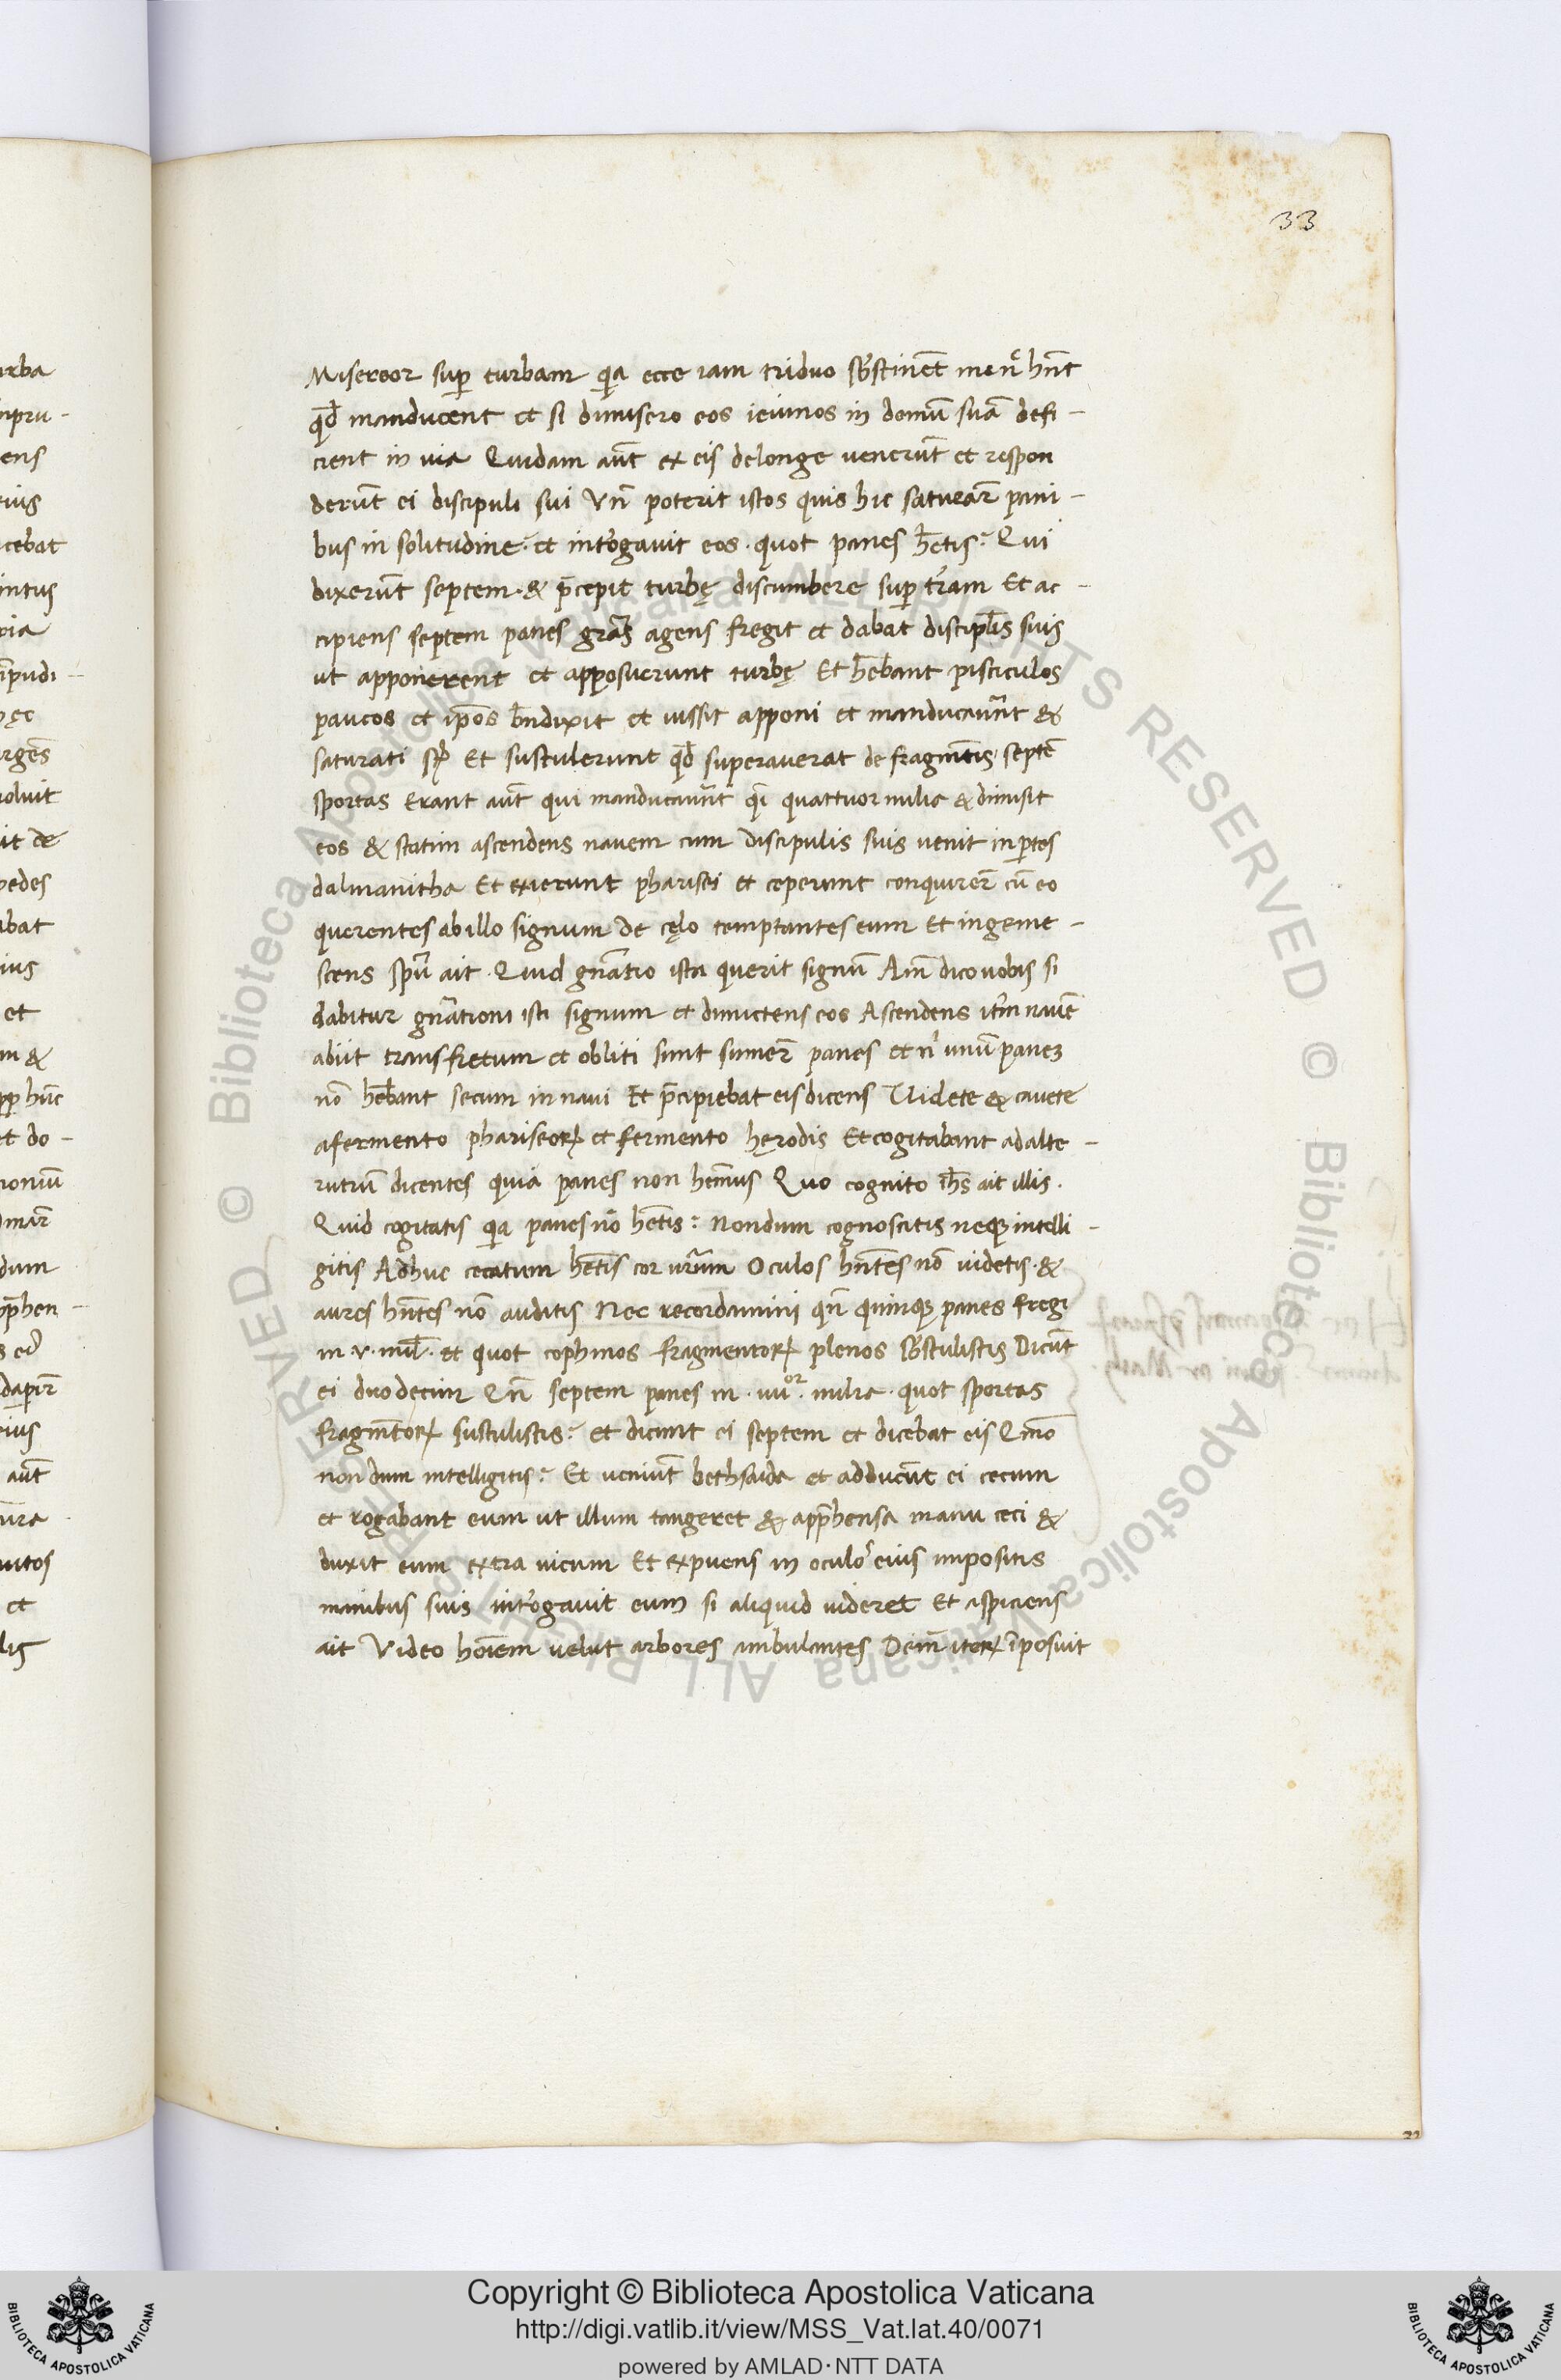 33
Misereor sup̱ turbam qͥa ecce iam triduo sustinēt me n̄ hn̄t
qd̄ manducent et si dimisero eos ieiunos in domū suā defi-
cient in uia Quidam aūt ex eis de longe uenerūt et respon
derūt ei discipuli sui Vn̄ poterit istos quis hic saturar̄ pani-
bus in solitudine? et int̾ogauit eos. quot panes h̄etis? Qui
dixerūt septem. & p̄cepit turbę discumbere sup̱ t̾ram Et ac-
cipiens septem panes gr̄as agens fregit et dabat discipl̄is suis
ut apponerent et apposuerunt turbę Et h̄ebant pisciculos
paucos et ip̄os b̄ndixit et iussit apponi et manducauer̄t &
saturati st̄ Et sustulerunt qd̄ superauerat de fragmt̄is septē
sportas Erant aūt qui manducauer̄t qͣi quattuor milia & dimisit
eos & statim ascendens nauem cum discipulis suis uenit in ꝑtes
dalmanitha Et exierunt pharisei et ceperunt conquirer̄ cū eo
querentes ab illo signum de cęlo temptantes eum Et ingeme-
scens spū ait. Quid gn̄atio ista querit signū Am̄ dico uobis si
dabitur gn̄ationi isti signum et dimictens eos Ascendens it̾m nauē
abiit transfretum et obliti sunt sumer̄ panes et n̾ unū panem
nō h̄ebant secum in naui Et p̄cipiebat eis dicens Uidete & cauete
a fermento phariseoꝝ et fermento hęrodis Et cogitabant ad alte-
rutrū dicentes quia panes non hēmus Quo cognito ih̄s ait illis.
Quid cogitatis qͥa panes nō hētis? nondum cognoscitis neqꝫ intelli-
gitis Adhuc cecatum hētis cor ur̄am Oculos hn̄tes nō uidetis. &
aures hn̄tes nō auditis Nec recordamini qn̄ quinqꝫ panes fregi
in .v. mil̄. et quot cophinos fragmentoꝝ plenos sustulistis Dicūt
ei duodecim Qn̄ septem panes in .iiii.ᵒʳ milia. quot sportas
fragmt̄oꝝ sustulistis? et dicunt ei septem et dicebat eis Qmō
non dum intelligitis? Et ueniūt bethsaida et adducūt ei cecum
et rogabant eum ut illum tangeret & app̄hensa manu ceci &
duxit eum extra uicum Et expuens in oculos eius impositis
manibus suis int̾ogauit eum si aliquid uideret Et aspiciens
ait Video hoīem uelut arbores ambulantes Dein̄ iteꝝ īposuit
Copyright © Biblioteca Apostolica Vaticana
http://digi.vatlib.it/view/MSS_Vat.lat.40/0071
powered by AMLAD·NTT DATA